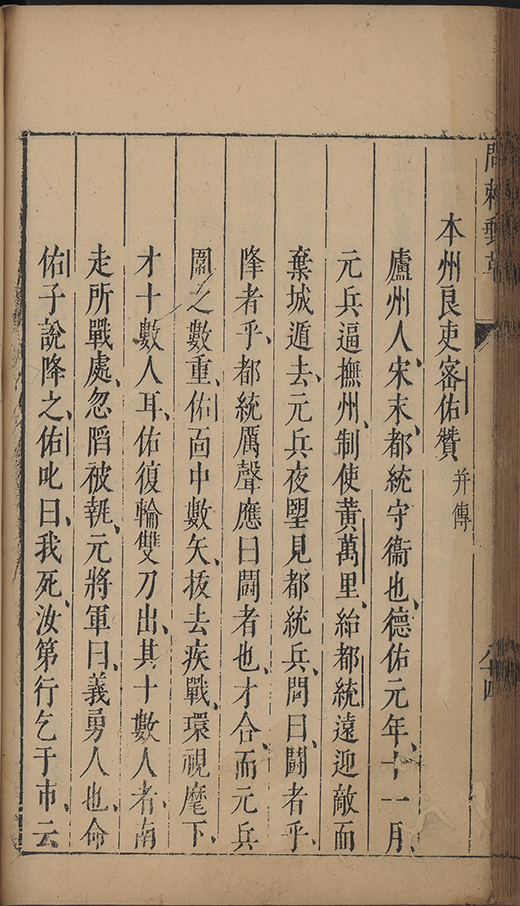 問棘郵草
本州良吏密佑贊 并傳
廬州人、宋末、都統守衞也、德佑元年、十一月、
元兵逼撫州、制使黃萬里、紿都統遠迎敵而
棄城遁去、元兵夜朢見都統兵、問曰、鬬者乎、
降者乎、都統厲聲應曰鬬者也、才合、而元兵
圍之數重、佑面中數矢、拔去疾戰、環視麾下、
才十數人耳、佑復輪雙刀出、其十數人者、南
走所戰處、忽䧟被執、元將軍曰、義勇人也、命
佑子說降之、佑叱曰、我死、汝第行乞于市、云